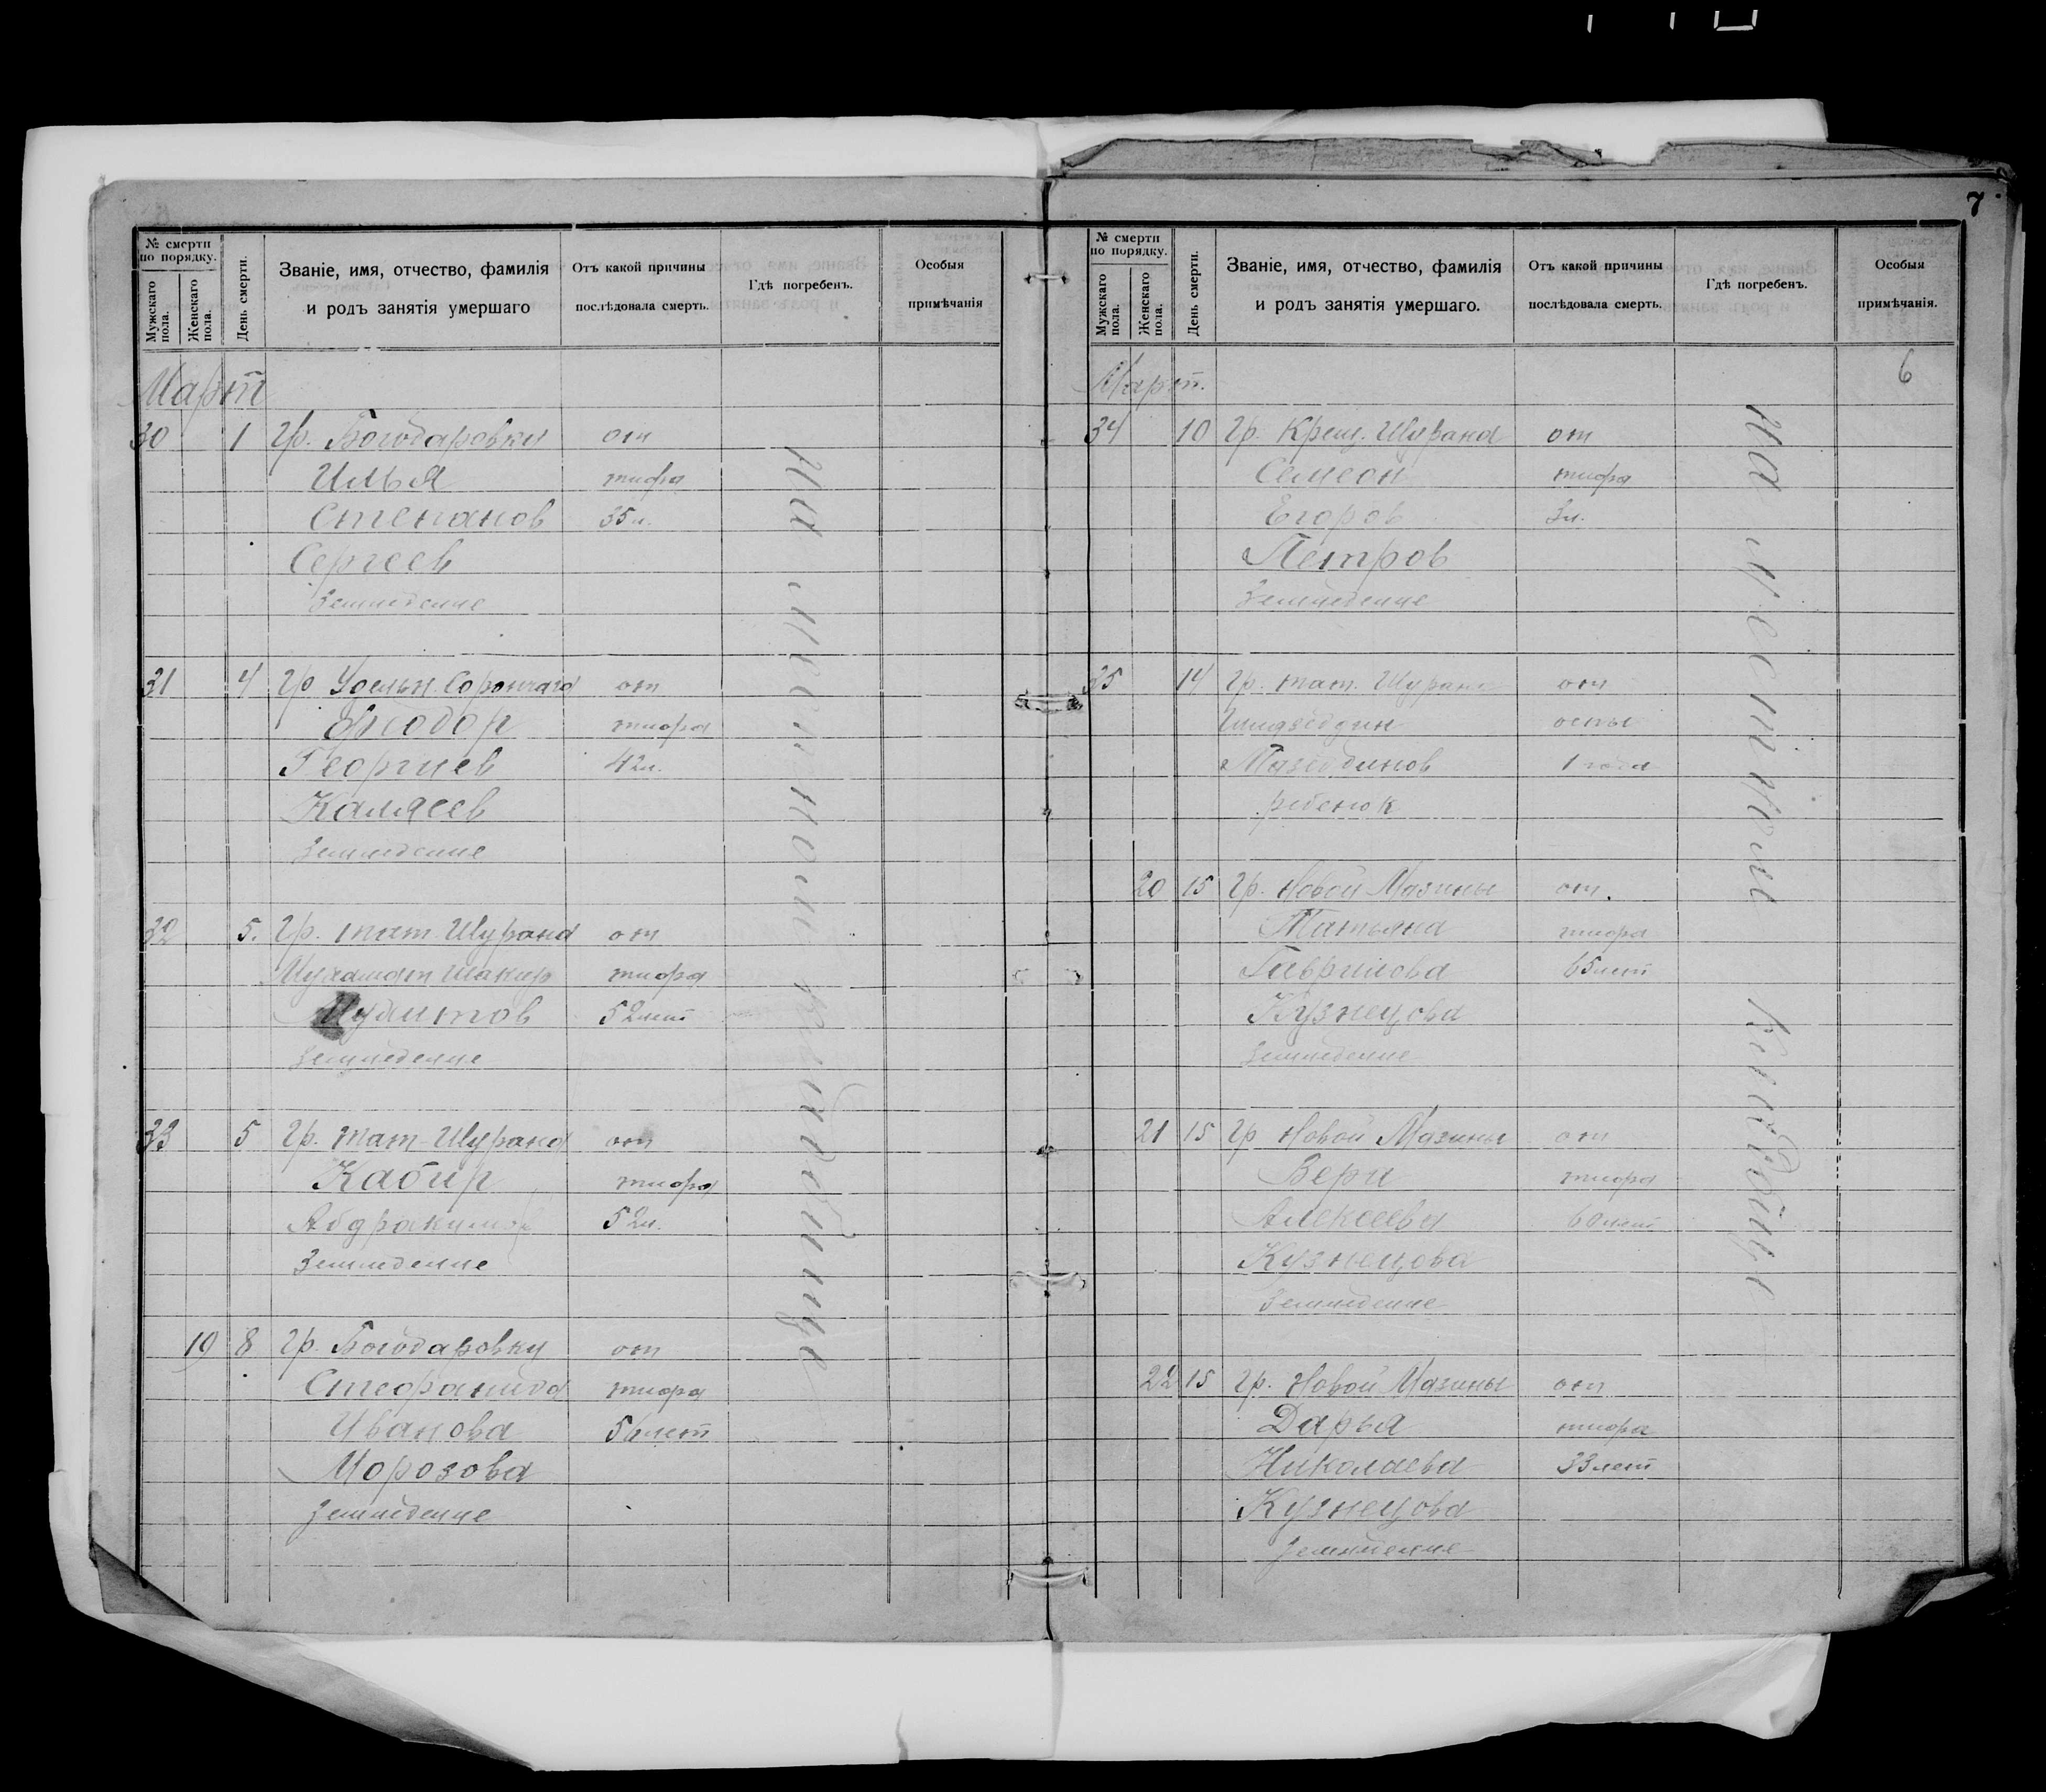 7
№ смерти по порядку.
Мужскаго пола.
Женскаго пола.
День смерти.
Званіе, имя, отчество, фамилія
и родъ занятія умершаго
Отъ какой причины
послѣдовала смерть.
Гдѣ погребенъ.
Особыя
примѣчанія
Март
30 1 Гр. Богодаровки от
Илья тифа
Степанов 35 л.
Сергеев
Земледелие
31 4 Гр Удельн. от
Фиодор тифа
Георгиев 42 л.
Каляев
Земледелие
32 5. Гр. тат. Шурана от
Мухамат Шакир тифа
52 лет
Земледелие
33 5 Гр. тат. Шурана от
Кабир тифа
52 л.
Земледелие
19 8 Гр. Богодаровки от
Стефанида тифа
Иванова лет
Морозова
Земледелие
На местном кладбище
№ смерти по порядку.
Мужскаго пола.
Женскаго пола.
День смерти.
Званіе, имя, отчество, фамилія
и родъ занятія умершаго.
Отъ какой причины
послѣдовала смерть.
Гдѣ погребенъ.
Особыя
примѣчанія.
Март.
6
34 10 Гр. Крещ. Шурана от
Семеон тифа
Егоров л.
Петров
Земледелие
35 14 Гр. тат. Шурана от
оспы
1 года
ребенок
20 15 Гр. Новой Мазины от.
Татьяна тифа
Гаврилова 65 лет
Кузнецова
Земледелие
21 15 Гр Новой Мазины от
Вера тифа
Алексеева 60 лет
Кузнецова
Земледелие
22 15 Гр. Новой Мазины от
Дарья тифа
Николаева 33 лет
Кузнецова
Земледелие
На местном кладбище